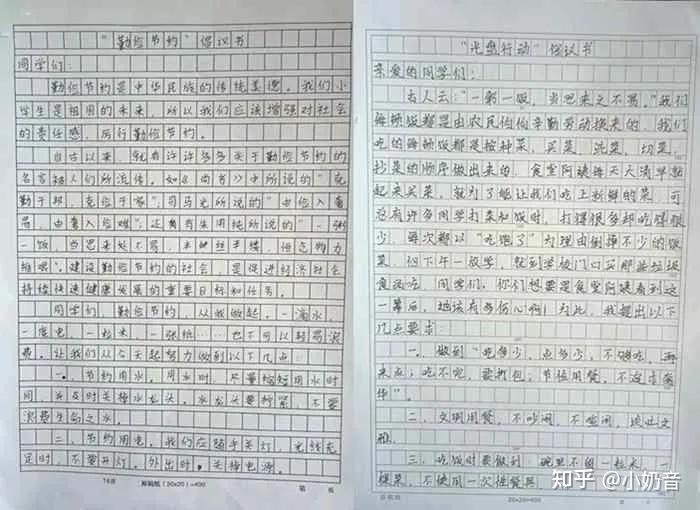 "勤俭节约"倡议书
同学们:
勤俭节约是中华民族的传统美德。我们小
学生是祖国的未来,所以我们应该增强对社会
的责任感,厉行勤俭节约。
自古以来,就有许许多多关于勤俭节约的
名言被人们所流传。如《尚书》中所说的"克
勤于邦,克俭于家",司马光所说的"由俭入奢
易,由奢入俭难",还有朱用纯所说的"一粥
一饭,当思来处不易,半丝半缕,恒念物力
维艰"。建设勤俭节约的社会,是促进经济社会
持续快速健康发展的重要目标和任务。
同学们,勤俭节约,从我做起,一滴水,
一度电,一粒米,一张纸……也不可以轻易浪
费。让我们从今天起努力做到以下几点:
一、节约用水。用水时,尽量缩短用水时
间,并及时关掉水龙头,水龙头要拧紧,不要
浪费生命之水。
二、节约用电。我们应随手关灯,光线充
足时,不要开灯。外出时,关掉电源。
原稿纸(20x20)=400
第 页
"光盘行动"倡议书
亲爱的同学们:
古人云:"一粥一饭,当思来之不易。"我们
每顿饭都是由农民伯伯辛勤劳动换来的,我们
吃的每顿饭都是按种菜,买菜,洗菜,切菜,
炒菜的顺序做出来的,食堂阿姨每天天清早就
起来买菜,就为了能让我们吃上新鲜的菜,可
总有许多同学打菜和饭时,打得很多却吃得很
少,每次都以"吃饱了"为理由倒掉不少的饭
菜。但下午一放学,就到学校门口买那些垃圾
食品吃,同学们,你们想要是食堂阿姨看到这
一幕后,她该有多伤心啊!为此,我提出以下
几点要求:
一、做到"吃多少,点多少,不够吃,再
来点;吃不完,要打包,节俭用餐,不追求奢
华"。
二、文明用餐,不吵闹,不喧闹,谈吐文
雅。
三、吃饭时要做到:碗里不留一粒米,一
棵菜,不使用一次性餐具
20x20=400
知乎 @小奶音